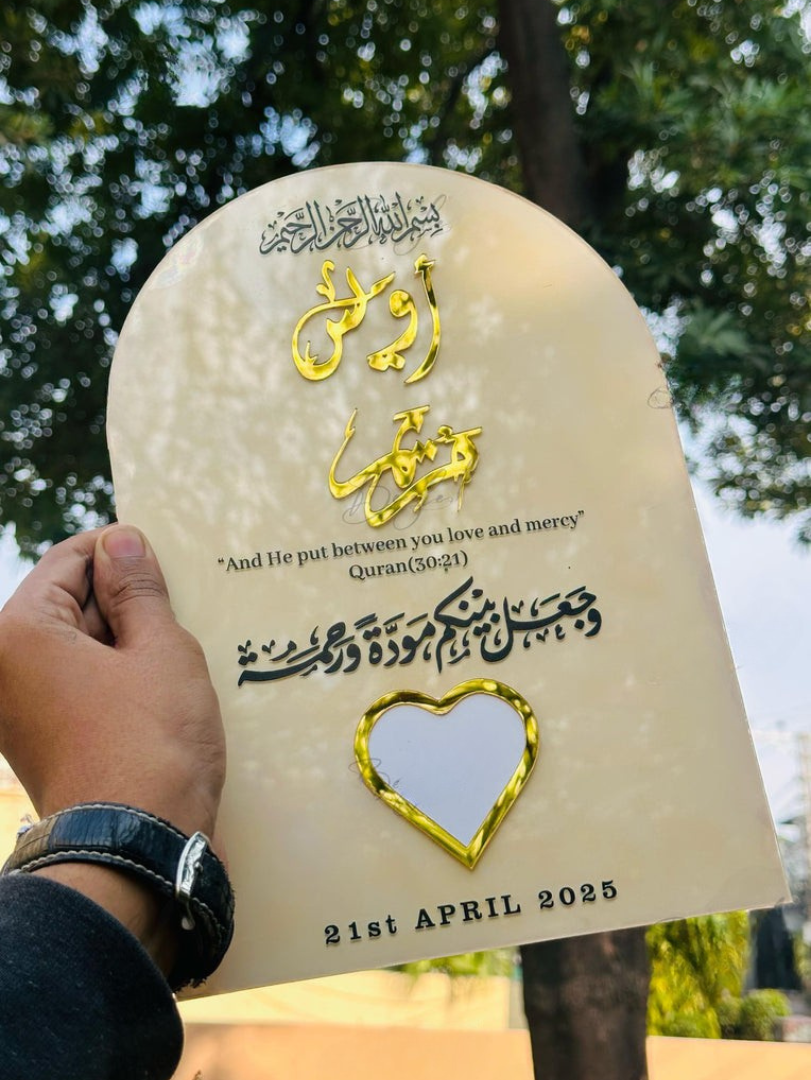 بِسْمِ اللهِ الرَّحْمٰنِ الرَّحِيْمِ
أويس
“And He put between you love and mercy”
Quran(30:21)
وَجَعَلَ بَيْنَكُم مَّوَدَّةً وَرَحْمَةً
21st APRIL 2025